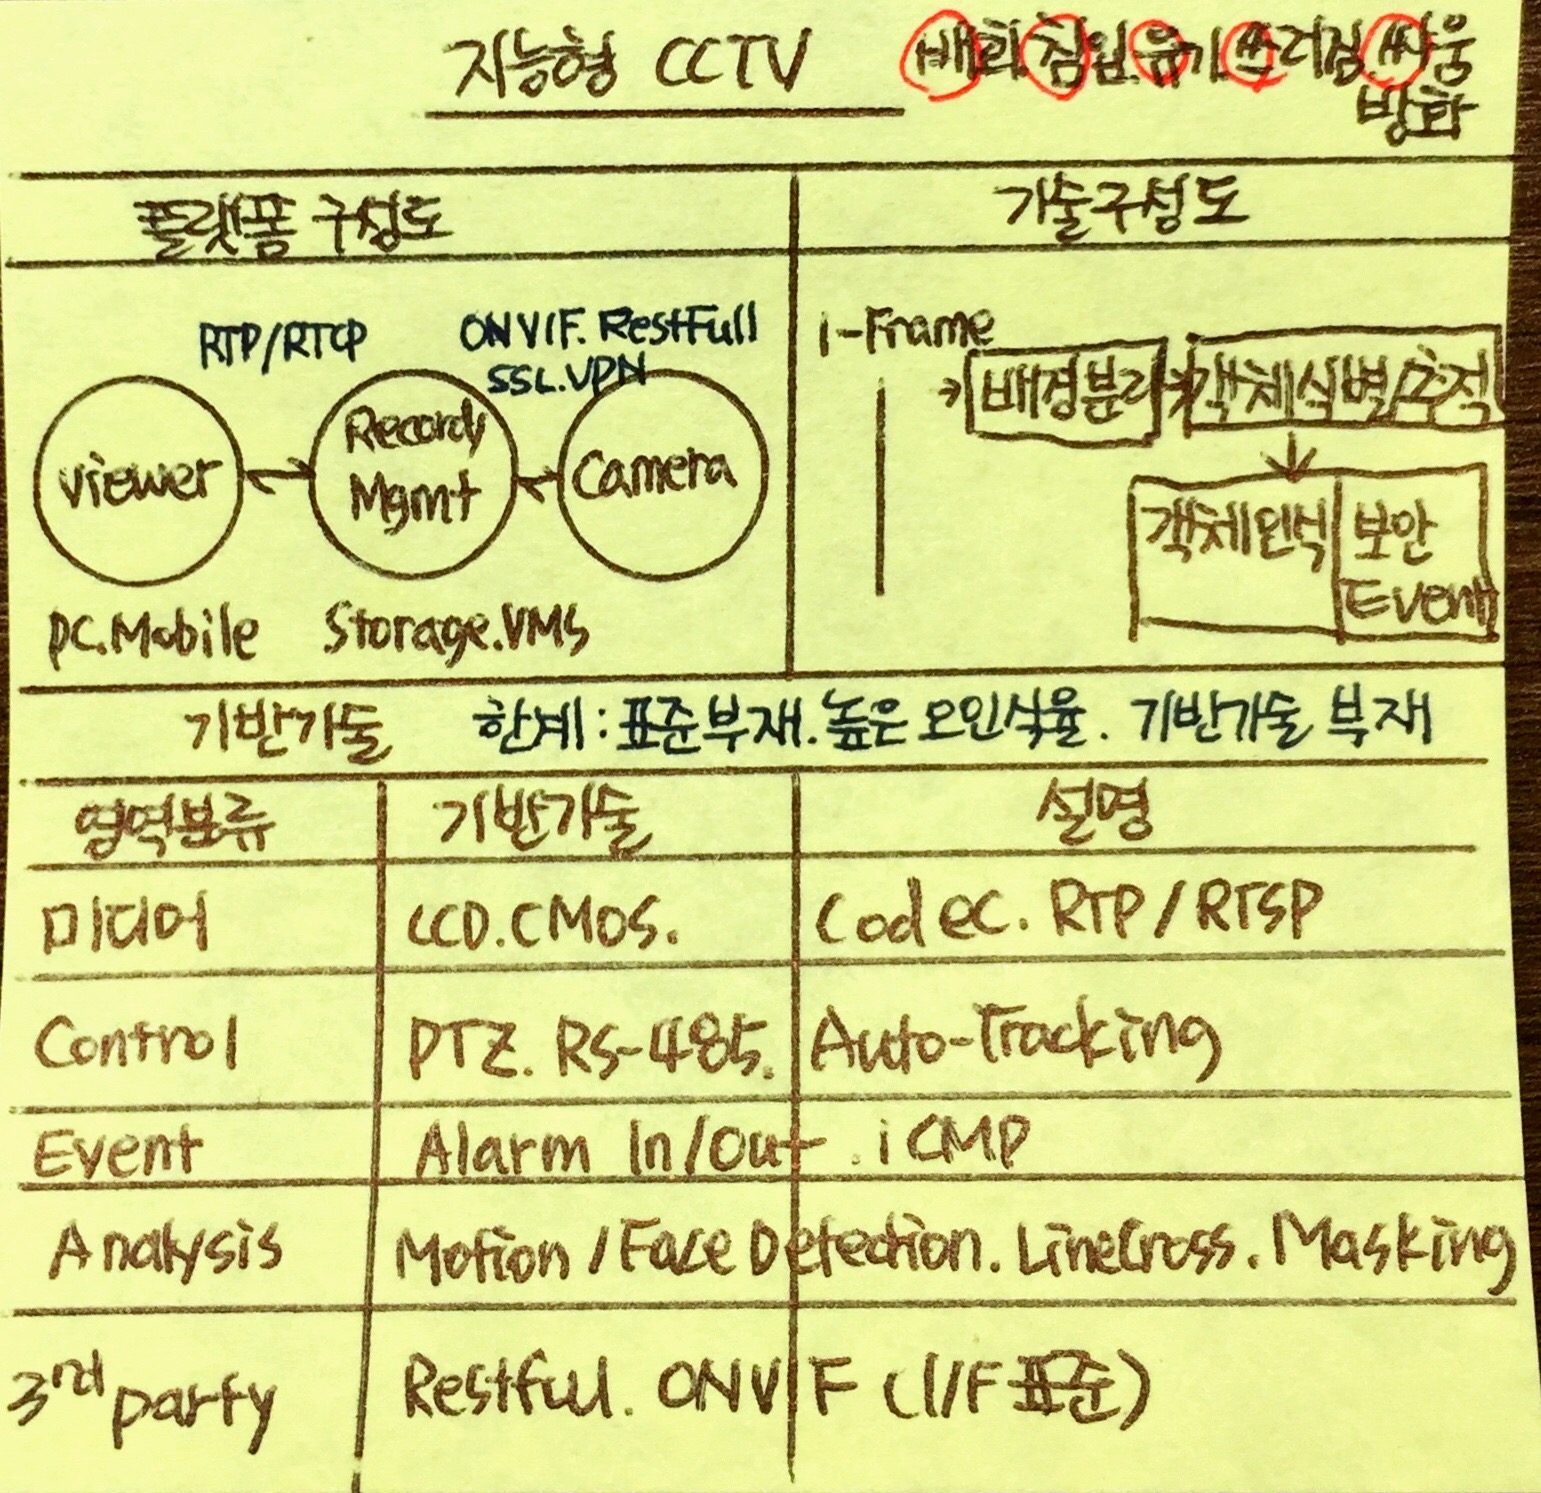 지능형 CCTV 배회.침입.유기.쓰러짐.싸움
방화
플랫폼 구성도 기술구성도
RTP/RTCP ONVIF. RestFull
SSL.VPN
viewer Record/
Mgmt Camera
PC.Mobile Storage.VMS
i-Frame
배경분리 객체식별/추적
객체인식 보안
Event
기반기술 한계 : 표준부재. 높은 오인식율. 기반기술 부재
영역분류 기반기술 설명
미디어 CCD.CMOS. Codec. RTP/RTSP
Control PTZ. RS-485. Auto-Tracking
Event Alarm In/Out . iCMP
Analysis Motion/Face Detection. LineCross. Masking
3rd party Restful. ONVIF (I/F 표준)